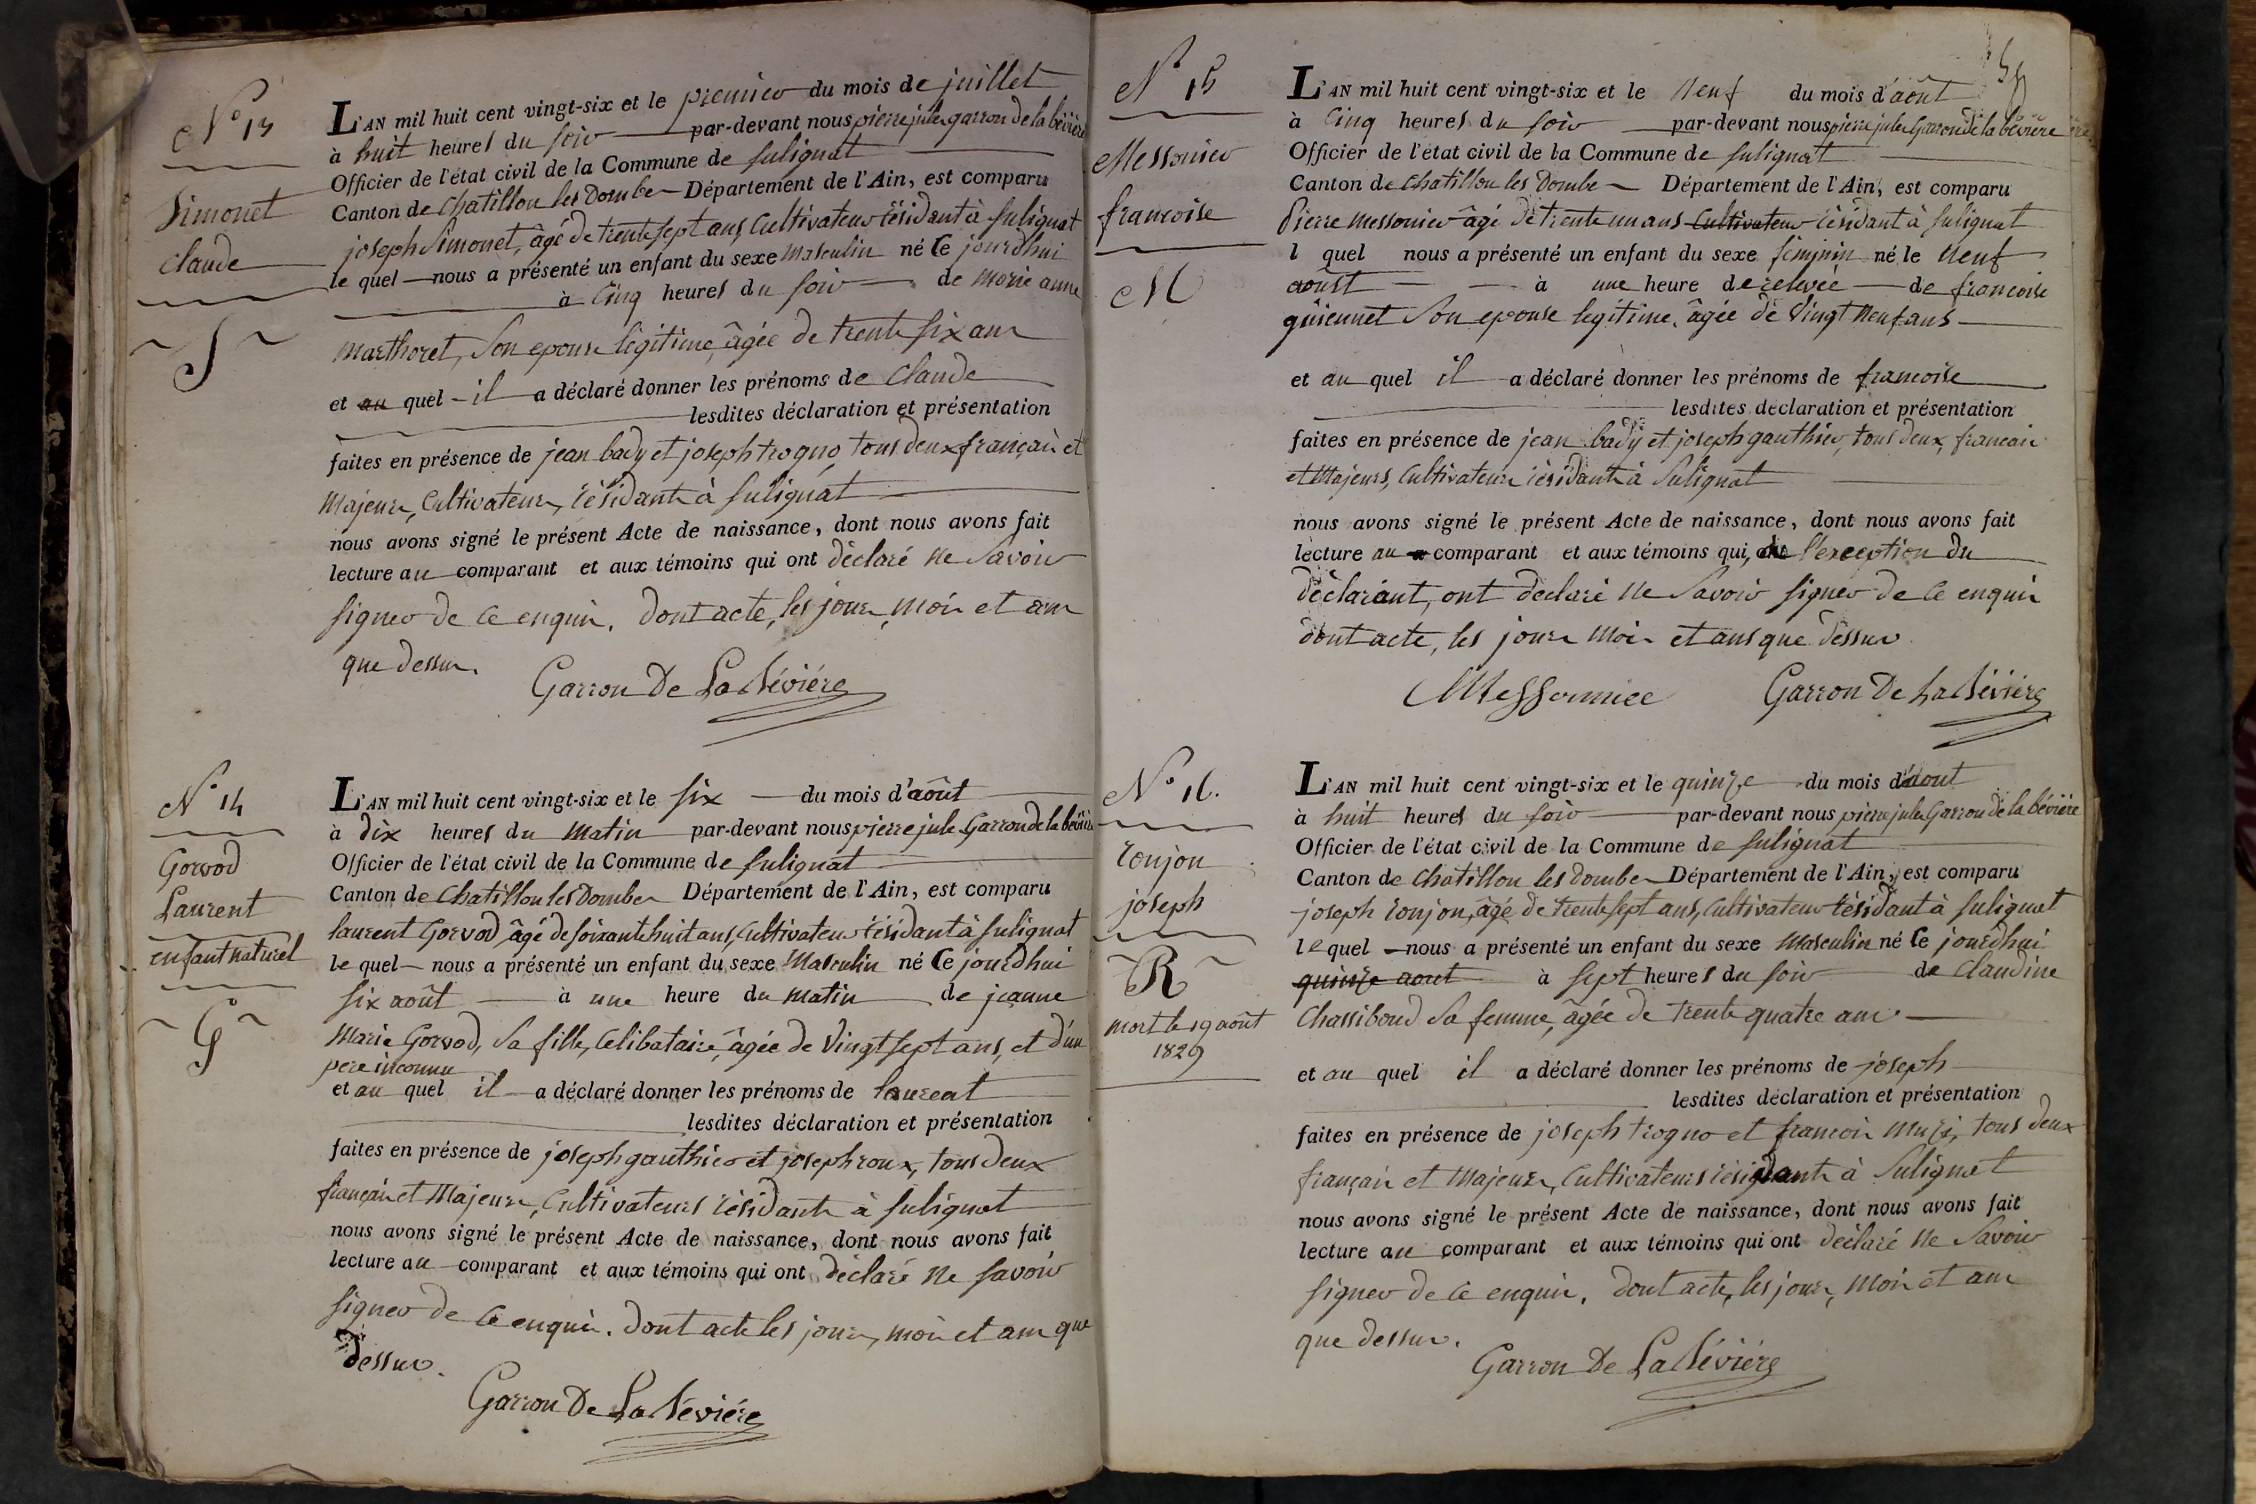 N° 13
Simonet
claude
S
L'AN mil huit cent vingt-six et le premier du mois de juillet
à huit heures du soir par-devant nous pierre jules garron de la bévière
Officier de l'état civil de la Commune de sulignat
Canton de Chatillon les Dombes Département de l'Ain, est comparu
joseph Simonet, âgé de trente sept ans, Cultivateur résidant à sulignat
le quel nous a présenté un enfant du sexe Masculin né Ce jourd'hui
à Cinq heures du soir de marie anne
marthoret, son epouse légitime, âgée de trente six ans
et au quel il a déclaré donner les prénoms de claude
lesdites déclaration et présentation
faites en présence de jean bady et joseph trogno, tous deux français et
Majeurs, Cultivateurs, résidants à sulignat
nous avons signé le présent Acte de naissance, dont nous avons fait
lecture au comparant et aux témoins qui ont déclaré ne savoir
signer de ce enquis. dont acte, les jours, mois et ans
que dessus.
Garron De La Bévière
N° 14
Gorvod
Laurent
enfant naturel
G
L'AN mil huit cent vingt-six et le six du mois d'août
à dix heures du matin par-devant nous pierre jules Garron de la bévière
Officier de l'état civil de la Commune de sulignat
Canton de Chatillon les Dombes Département de l'Ain, est comparu
laurent Gorvod âgé de soixante huit ans, Cultivateur résidant à sulignat
le quel nous a présenté un enfant du sexe Masculin né Ce jourd'hui
six août à une heure du matin de jeanne
Marie Gorvod, sa fille, Celibataire, âgée de vingt sept ans, et d'un
pere inconnu
et au quel il a déclaré donner les prénoms de laurent
lesdites déclaration et présentation
faites en présence de joseph gauthier et joseph roux, tous deux
français et Majeurs, Cultivateurs résidants à sulignat
nous avons signé le présent Acte de naissance, dont nous avons fait
lecture au comparant et aux témoins qui ont déclaré ne savoir
signer de ce enquis. dont acte les jours, mois et ans que
dessus.
Garron De La Bévière
N° 15
Messonier
francoise
M
L'AN mil huit cent vingt-six et le neuf du mois d'août
à Cinq heures du soir par-devant nous pierre jules Garron de la bévière
Officier de l'état civil de la Commune de sulignat
Canton de Chatillon les Dombe Département de l'Ain, est comparu
Pierre messonier âgé de trente un ans Cultivateur résidant à sulignat
l quel nous a présenté un enfant du sexe féminin né le neuf
aoûst à une heure de relevée de francoise
guiennet son epouse legitime, âgée de vingt neuf ans
et au quel il a déclaré donner les prénoms de francoise
lesdites déclaration et présentation
faites en présence de jean bady et joseph gauthier, tous deux, francais
et Majeurs, Cultivateurs résidants à sulignat
nous avons signé le présent Acte de naissance, dont nous avons fait
lecture au comparant et aux témoins qui, à l'exception du
déclarant, ont déclaré ne savoir signer de ce enquis
dont acte, les jours mois et ans que dessus
Messonnier Garron De La Bévière
N° 16.
ronjon
joseph
R
mort le 19 août
1829
L'AN mil huit cent vingt-six et le quinze du mois d'aout
à huit heures du soir par-devant nous pierre jules Garron de la bévière
Officier de l'état civil de la Commune de sulignat
Canton de Chatillon les dombes Département de l'Ain, est comparu
joseph ronjon, âgé de trente sept ans, Cultivateur résidant à sulignat
le quel nous a présenté un enfant du sexe Masculin né Ce jourd'hui
quinze aout à sept heures du soir de Claudine
Chassiboud sa femme, âgée de trente quatre ans
et au quel il a déclaré donner les prénoms de joseph
lesdites déclaration et présentation
faites en présence de joseph trogno et francois muzi, tous deux
français et Majeurs, Cultivateurs résidants à sulignat
nous avons signé le présent Acte de naissance, dont nous avons fait
lecture au comparant et aux témoins qui ont déclaré ne savoir
signer de ce enquis. dont acte, les jours, mois et ans
que dessus.
Garron De La Bévière